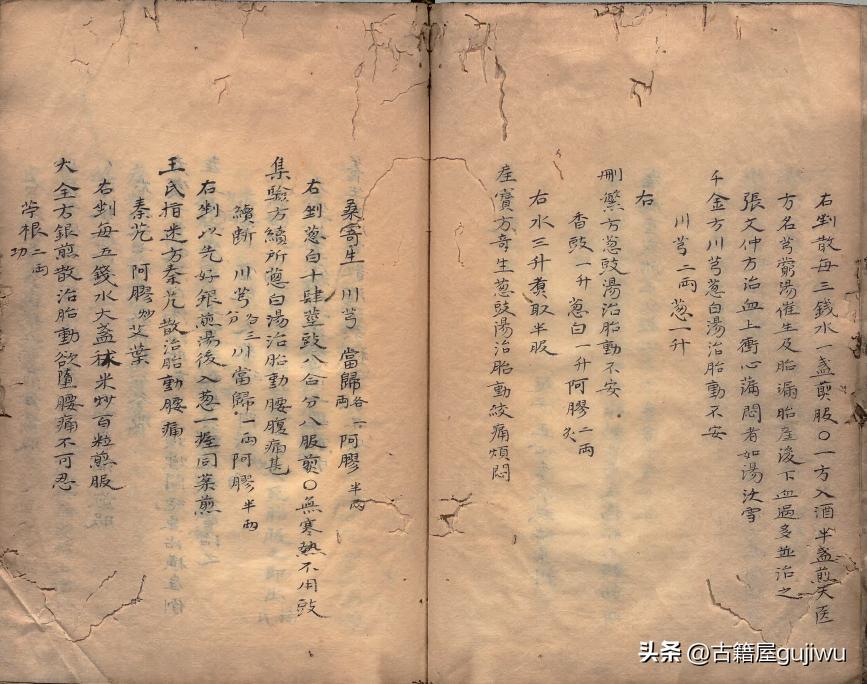 右剉散每三錢水一盞煎服〇一方入酒半盞煎天医
方名芎藭湯催生及胎漏胎産後下血過多並治之
張文仲方治血上衝心滿悶者如湯沃雪
千金方川芎葱白湯治胎動不安
川芎二兩葱一升
右
刪繁方葱豉湯治胎動不安
香豉一升葱白一升阿膠二兩炙
右水三升煮取半服
産寶方寄生葱豉湯治胎動絞痛煩悶
桑寄生 川芎 當歸各一兩 阿膠半兩
右剉葱白十肆莖豉八合分八服煎〇無寒熱不用豉
集驗方續所葱白湯治胎動腰腹痛甚
續断 川芎各三分 川當歸一兩 阿膠半兩
右剉以先好銀煎湯後入葱一握同藥煎
王氏指迷方秦艽散治胎動腰痛
秦艽 阿膠炒 艾葉
右剉每五錢水大盞秫米炒百粒煎服
大全方銀煎散治胎動欲墮腰痛不可忍
苧根二兩切
头条 @古籍屋gujiwu